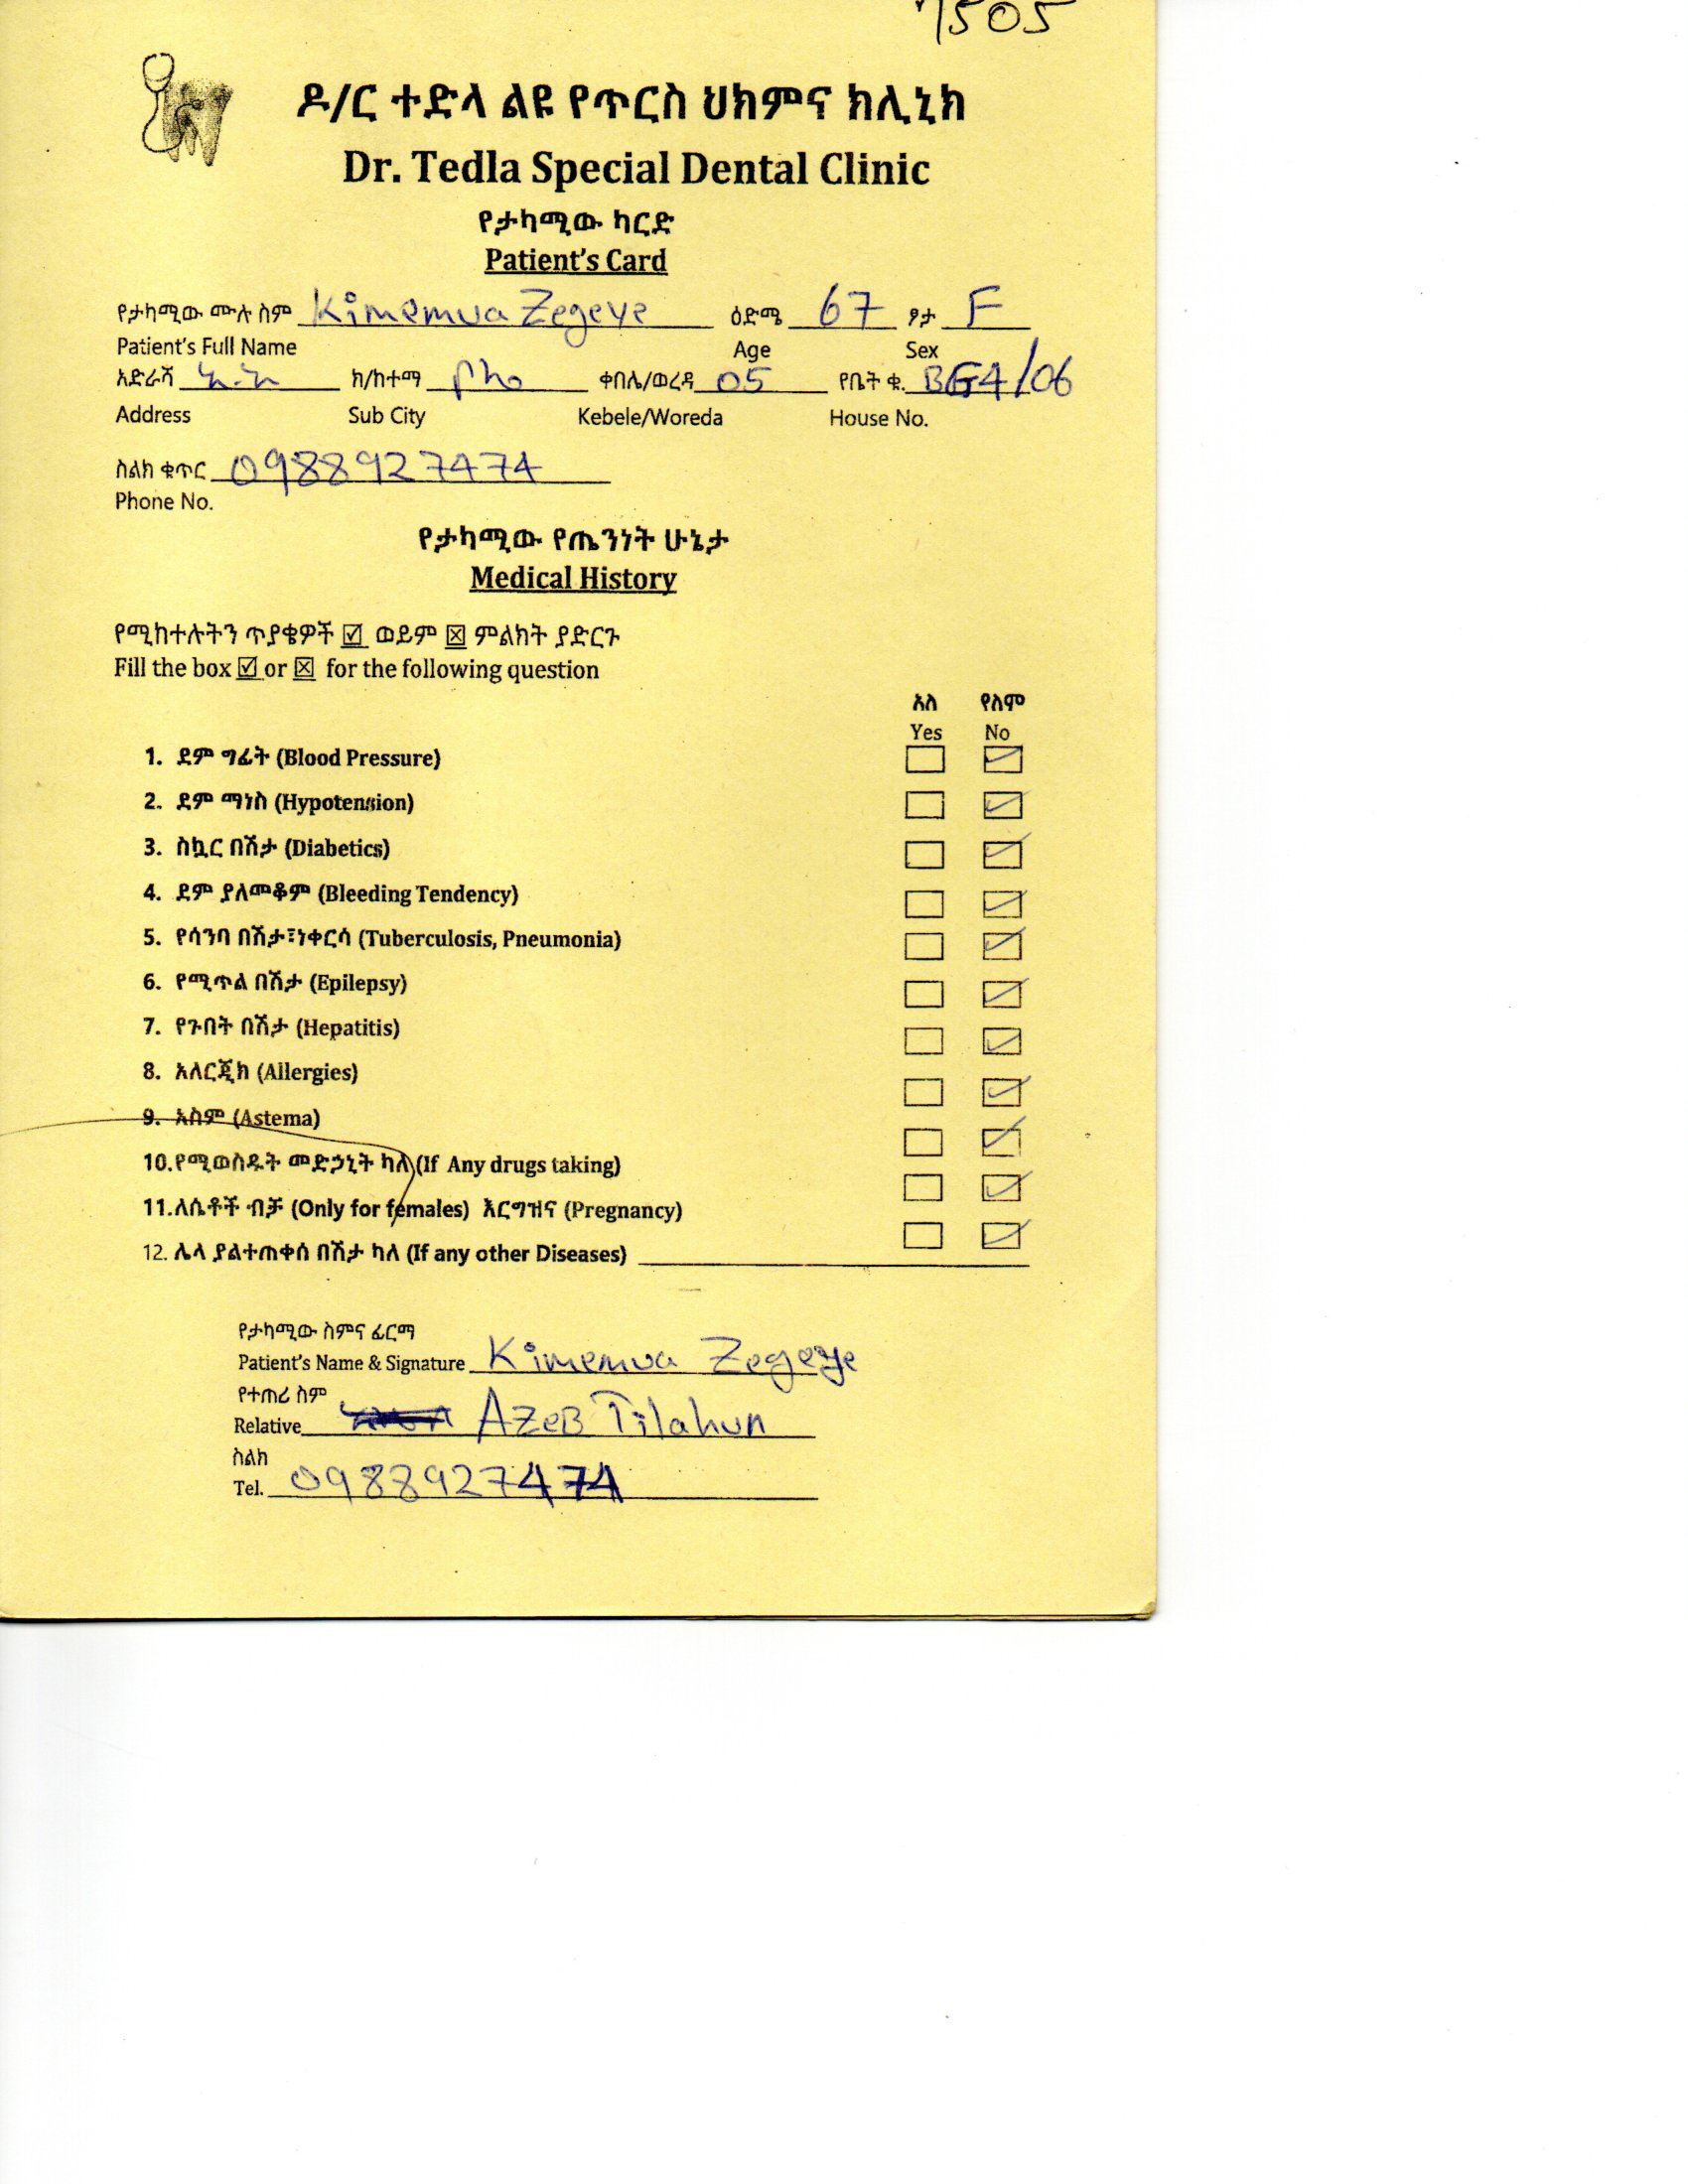 7505
ዶ/ር ተድላ ልዩ የጥርስ ህክምና ክሊኒክ
Dr. Tedla Special Dental Clinic
የታካሚው ካርድ
Patient's Card
የታካሚው ሙሉ ስም Kimemua Zegeye ዕድሜ 67 ፆታ F
Patient's Full Name Age Sex
አድራሻ አ.አ ክ/ከተማ ቦሌ ቀበሌ/ወረዳ 05 የቤት ቁ. BG4/06
Address Sub City Kebele/Woreda House No.
ስልክ ቁጥር 0988927474
Phone No.
የታካሚው የጤንነት ሁኔታ
Medical History
የሚከተሉትን ጥያቄዎች ☑ ወይም ☒ ምልክት ያድርጉ
Fill the box ☑ or ☒ for the following question
አለ የለም
Yes No
1. ደም ግፊት (Blood Pressure) ☐ ☑
2. ደም ማነስ (Hypotension) ☐ ☑
3. ስኳር በሽታ (Diabetics) ☐ ☑
4. ደም ያለመቆም (Bleeding Tendency) ☐ ☑
5. የሳንባ በሽታ፣ነቀርሳ (Tuberculosis, Pneumonia) ☐ ☑
6. የሚጥል በሽታ (Epilepsy) ☐ ☑
7. የጉበት በሽታ (Hepatitis) ☐ ☑
8. አለርጂክ (Allergies) ☐ ☑
9. አስም (Astema) ☐ ☑
10.የሚወስዱት መድኃኒት ካለ (If Any drugs taking) ☐ ☑
11.ለሴቶች ብቻ (Only for females) እርግዝና (Pregnancy) ☐ ☑
12. ሌላ ያልተጠቀሰ በሽታ ካለ (If any other Diseases)
የታካሚው ስምና ፊርማ
Patient's Name & Signature Kimemua Zegeye
የተጠሪ ስም
Relative AZeB Tilahun
ስልክ
Tel. 0988927474